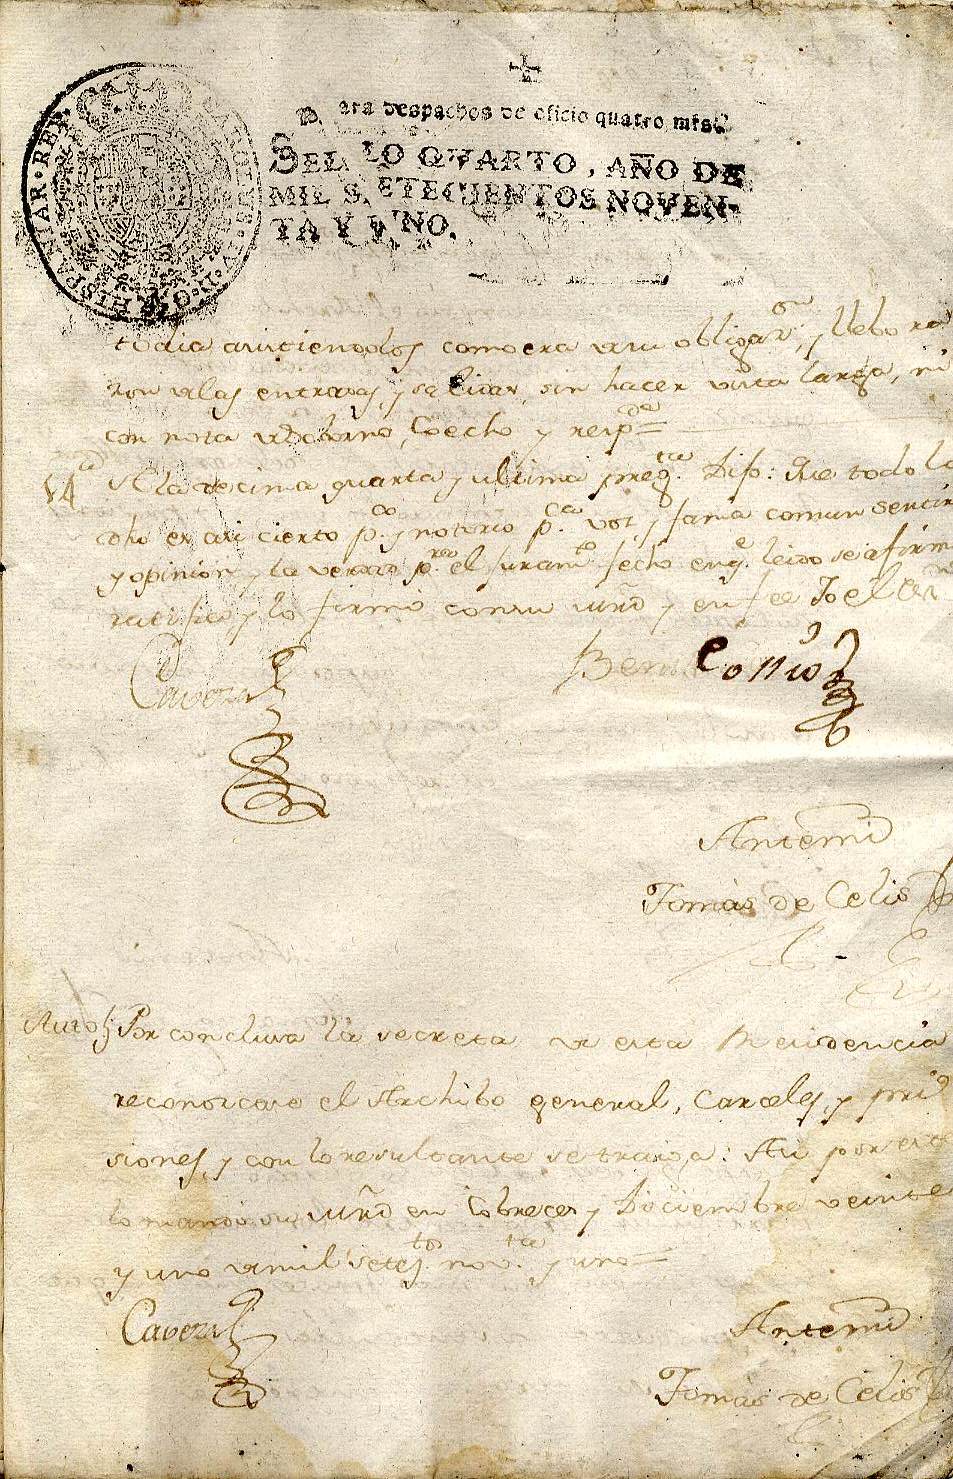 CAROLUS IV D G HISPANIAR REX
Para despachos de oficio quatro mrs.
SELLO QVARTO, AÑO DE
MIL SETECIENTOS NOVEN-
TA Y VNO.
todia como era obligaⁿ, y llebo
zon las entradas, y salidas, sin hacer vista larga, ni
con nota Soborno, Coecho y resp.de =
14.a A la decima quarta y ultima preg.ta Dijo: Que todo lo
dho es asi cierto p.co y notorio p.ca voz, y fama comun sentir
y opinion, y la verdad p.ra el juram.to fecho en q.e leido se afirm
ratifica, y lo firmó con su mrd y en fee Yo el
Caveza
Cossio
Antemi
Tomás de Celis
Auto Por conclusa la secreta de esta Residencia
reconozcase el Archibo general, Carceles, y pri
siones, y con lo resultante se traiga: Asi por este
lo mando su mrd en Cobreces y Diciembre veinte
y uno mil setez.tos nov.ta y uno =
Caveza
Antemi
Tomás de Celis